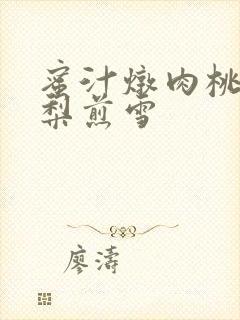 蜜汁燉肉桃
梨煎雪
廖濤